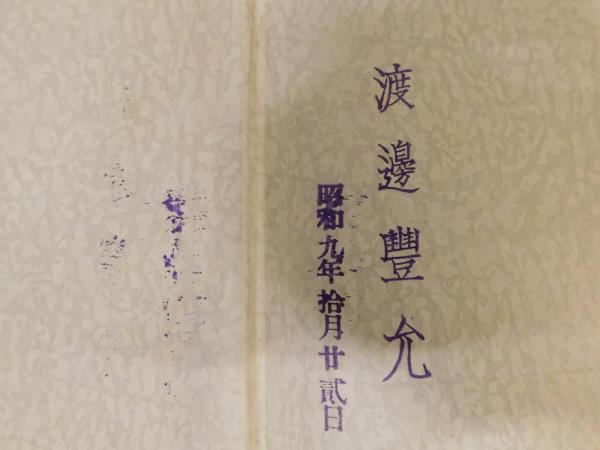 渡邊豐允
昭和九年拾月廿貳日